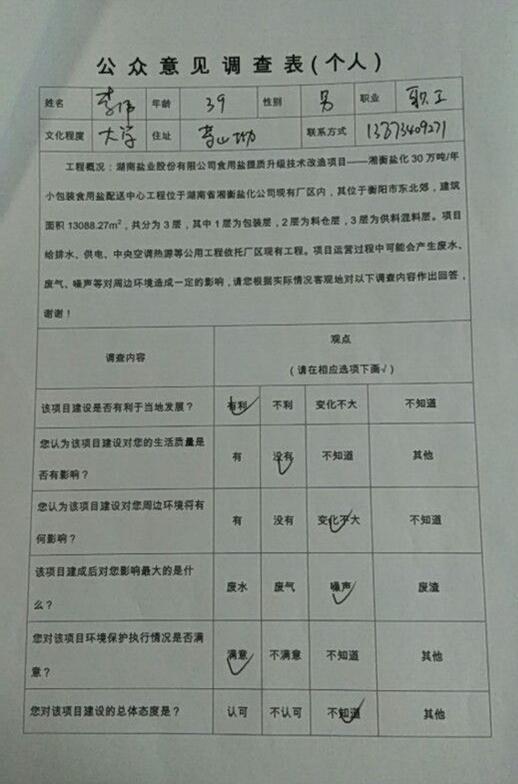 公众意见调查表(个人)
姓名 李伟 年龄 39 性别 男 职业 职工
文化程度 大学 住址 联系方式
工程概况：湖南盐业股份有限公司食用盐提质升级技术改造项目——湘衡盐化30万吨/年
小包装食用盐配送中心工程位于湖南省湘衡盐化公司现有厂区内，其位于衡阳市东北郊，建筑
面积13088.27m²，共分为3层，其中1层为包装层，2层为料仓层，3层为供料混料层。项目
给排水、供电、中央空调热源等公用工程依托厂区现有工程。项目运营过程中可能会产生废水、
废气、噪声等对周边环境造成一定的影响，请您根据实际情况客观地对以下调查内容作出回答，
谢谢！
调查内容 观点
（请在相应选项下画√）
该项目建设是否有利于当地发展？ 有利 不利 变化不大 不知道
您认为该项目建设对您的生活质量是
否有影响？ 有 没有 不知道 其他
您认为该项目建设对您周边环境将有
何影响？ 有 没有 变化不大 不知道
该项目建成后对您影响最大的是什
么？ 废水 废气 噪声 废渣
您对该项目环境保护执行情况是否满
意？ 满意 不满意 不知道 其他
您对该项目建设的总体态度是？ 认可 不认可 不知道 其他